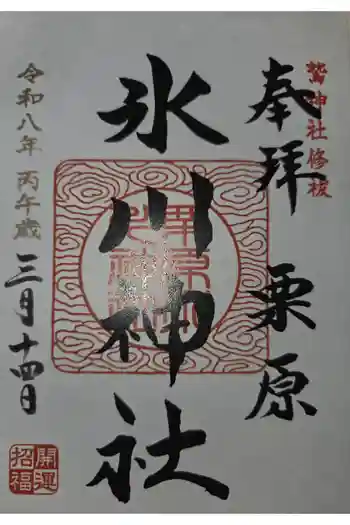 鷲神社修祓
奉拝 栗原
氷川神社
令和八年 丙午歳
三月十四日
開運
招福